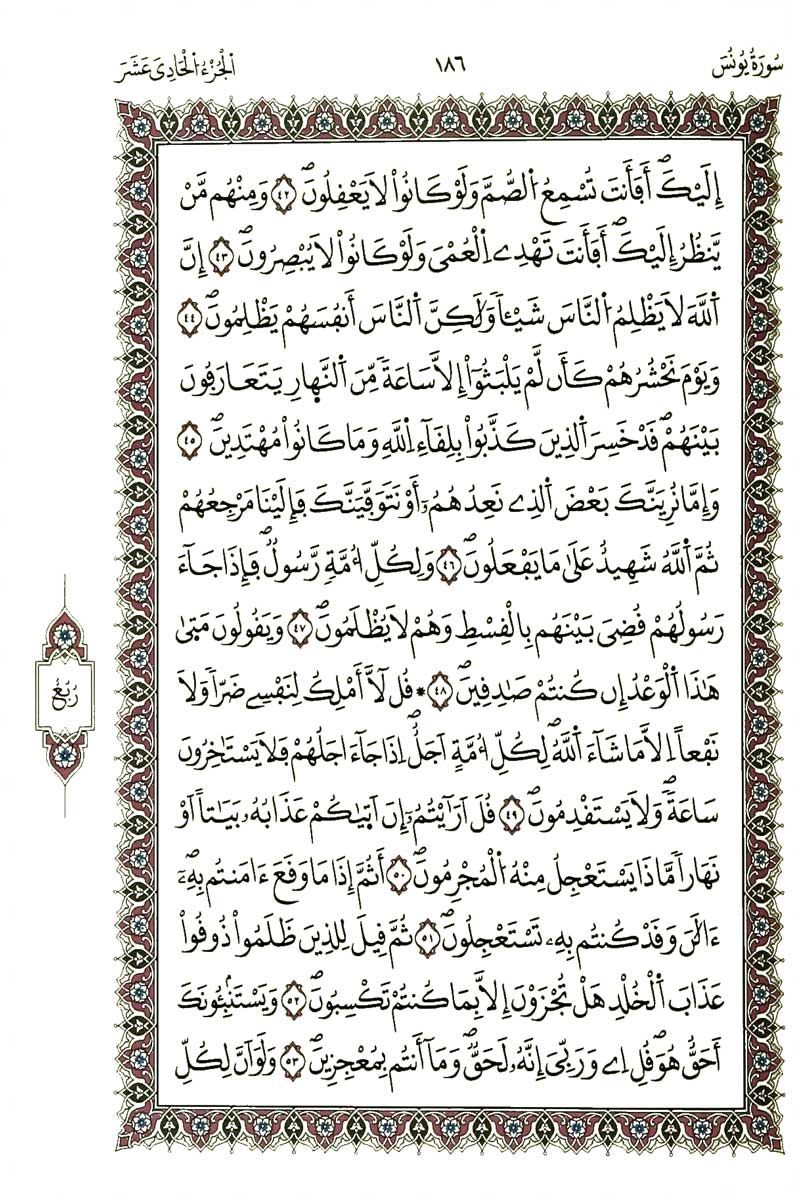 سُورَةُ يُونُسَ
١٨٦
اَلْجُزْءُ الْحَادِيَ عَشَرَ
إِلَيْكَۖ أَفَأَنتَ تُسْمِعُ اُلصُّمَّ وَلَوْ كَانُواْ لَا يَعْفِلُونَۖ ٤٢ وَمِنْهُم مَّنْ
يَّنظُرُ إِلَيْكَۖ أَفَأَنتَ تَهْدِے اِلْعُمْىَ وَلَوْ كَانُواْ لَا يُبْصِرُونَۖ ٤٣ إِنَّ
اَللَّهَ لَا يَظْلِمُ اُلنَّاسَ شَيْـٔاٗ وَلَٰكِنَّ اَلنَّاسَ أَنفُسَهُمْ يَظْلِمُونَۖ ٤٤
وَيَوْمَ نَحْشُرُهُمْ كَأَن لَّمْ يَلْبَثُوٓاْ إِلَّا سَاعَةٗ مِّنَ اَلنَّهارِ يَتَعَارَفُونَ
بَيْنَهُمْۖ فَدْ خَسِرَ اَلذِينَ كَذَّبُواْ بِلِفَآءِ اِللَّهِ وَمَا كَانُواْ مُهْتَدِينَۖ ٤٥
وَإِمَّا نُرِيَنَّكَ بَعْضَ اَلذِے نَعِدُهُمُۥٓ أَوْ نَتَوَفَّيَنَّكَ فَإِلَيْنَا مَرْجِعُهُمْ
ثُمَّ اَللَّهُ شَهِيدٌ عَلَىٰ مَا يَفْعَلُونَۖ ٤٦ وَلِكُلِّ أُمَّةٖ رَّسُولٞۖ فَإِذَا جَآءَ
رَسُولُهُمْ فُضِىَ بَيْنَهُم بِالْفِسْطِ وَهُمْ لَا يُظْلَمُونَۖ ٤٧ وَيَفُولُونَ مَتىٰ
هَٰذَا اَلْوَعْدُ إِن كُنتُمْ صَٰدِفِينَۖ ٤٨ * فُل لَّآ أَمْلِكُ لِنَفْسِے ضَرّاٗ وَلَا
نَفْعاً اِلَّا مَا شَآءَ اَللَّهُۖ لِكُلِّ أُمَّةٍ اَجَلٌۖ اِذَا جَآءَ اجَلُهُمْ فَلَا يَسْتَٰخِرُونَ
سَاعَةٗۖ وَلَا يَسْتَفْدِمُونَۖ ٤٩ فُلَ اَرَآيْتُمُۥٓ إِنَ اَتٜيٰكُمْ عَذَابُهُۥ بَيَٰتاً اَوْ
نَهَاراٗ مَّا ذَا يَسْتَعْجِلُ مِنْهُ اُلْمُجْرِمُونَۖ ٥٠ أَثُمَّ إِذَا مَا وَفَعَ ءَامَنتُم بِهِۦٓۖ
ءَآلَٰنَ وَفَدْ كُنتُم بِهِۦ تَسْتَعْجِلُونَۖ ٥١ ثُمَّ فِيلَ لِلذِينَ ظَلَمُواْ ذُوفُواْ
عَذَابَ اَلْخُلْدِ هَلْ تُجْزَوْنَ إِلَّا بِمَا كُنتُمْ تَكْسِبُونَۖ ٥٢ وَيَسْتَنۢبِـُٔونَكَ
أَحَقٌّ هُوَۖ فُلِ اِے وَرَبِّىَ إِنَّهُۥ لَحَقّٞۖ وَمَآ أَنتُم بِمُعْجِزِينَۖ ٥٣ وَلَوَ اَنَّ لِكُلِّ
رُبُعُ